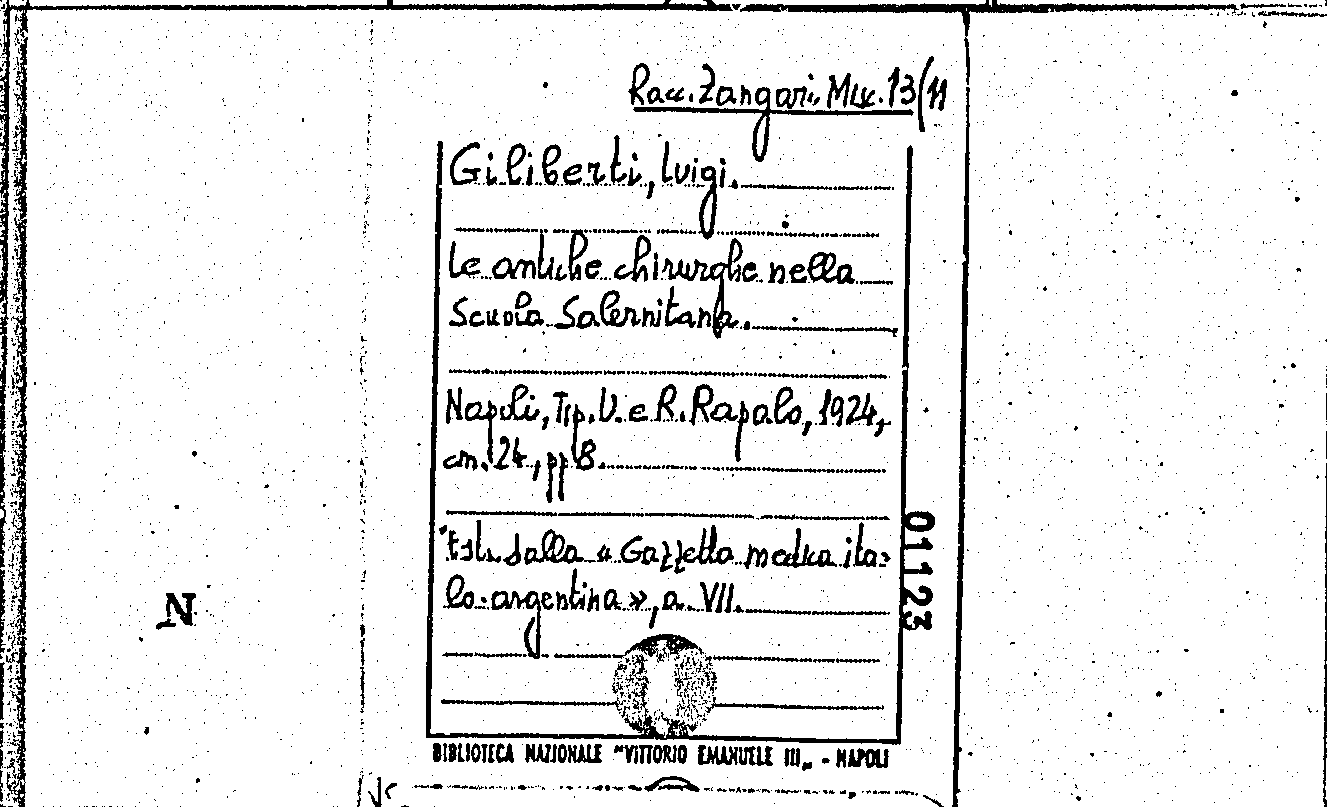 Racc. Zangari Misc. 13/11
Giliberti, Luigi.
Le antiche chirurghe nella
Scuola Salernitana.
Napoli, Tip. V. e R. Rapalo, 1924,
cm. 24, pp 8.
Estr. dalla « Gazzetta medica ita=
lo-argentina », a. VII.
01123
N
BIBLIOTECA NAZIONALE "VITTORIO EMANUELE III„ - NAPOLI